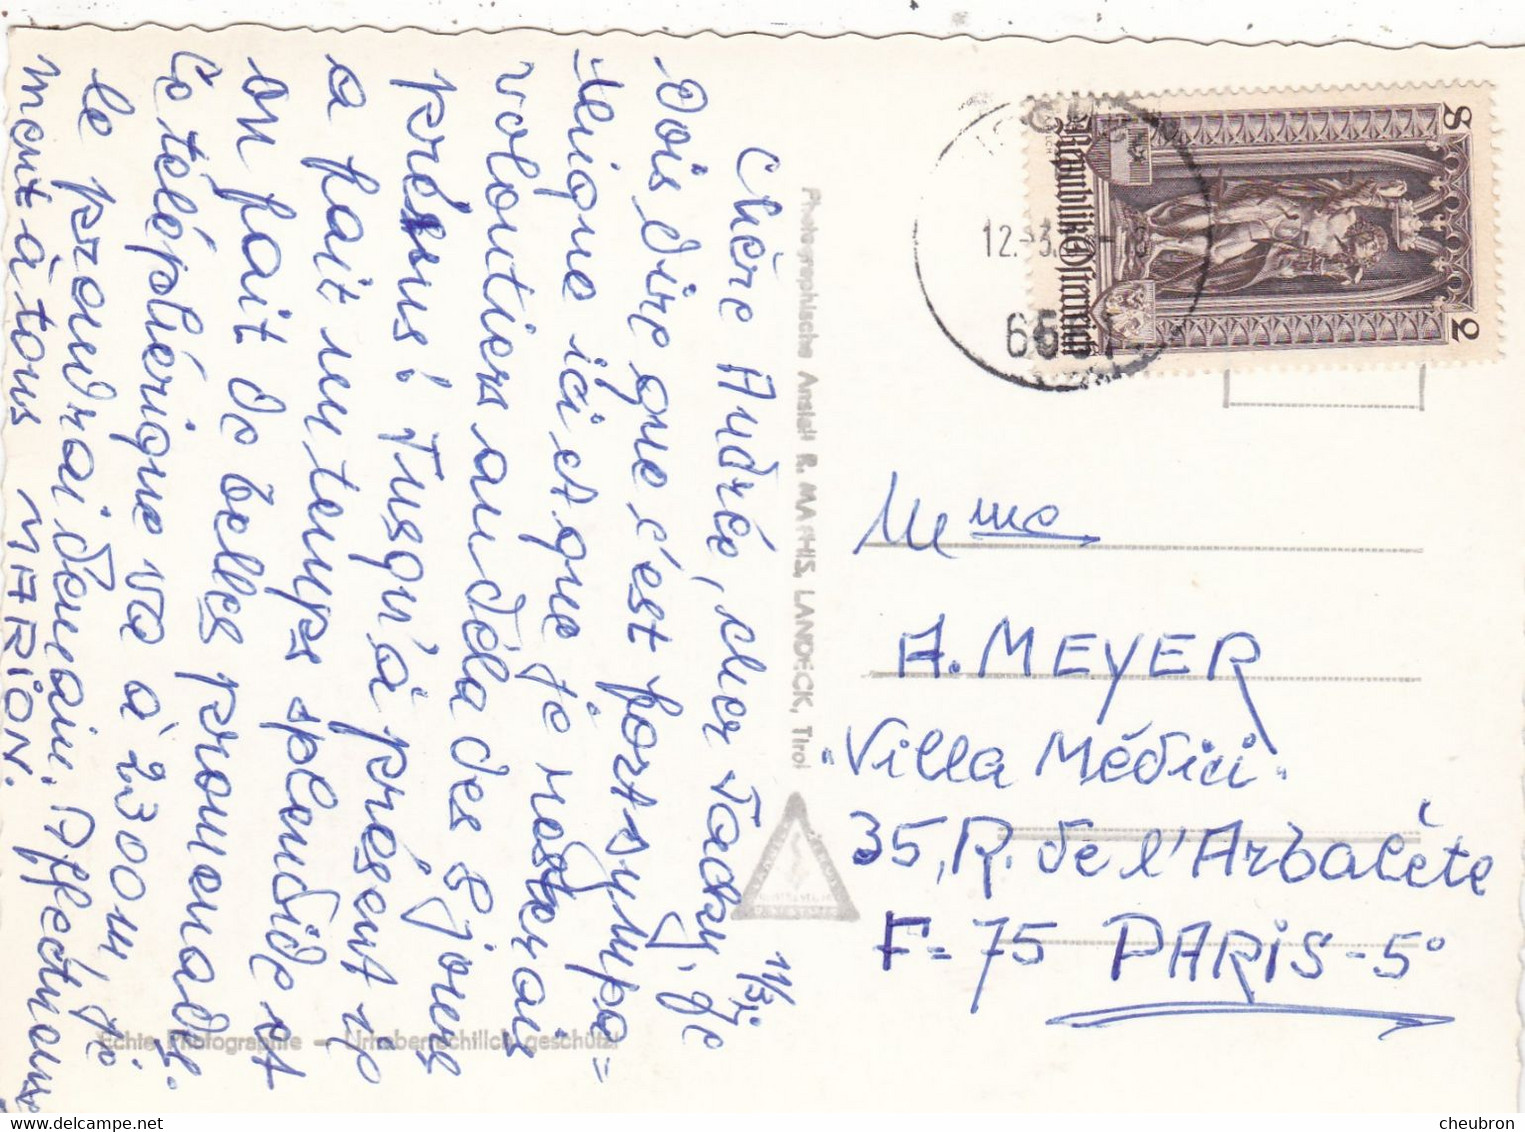 11/3
Chère Andrée, cher Jacky, Je
dois dire que c'est fort sympa=
thique ici et que je resterais
volontiers au déla des 8 jours
prévus! Jusqu'à présent il
a fait un temps splendide et
on fait de belles promenades.
Le téléphérique va à 2300m, je
le prendrai demain. Affectueuse
ment à tous MARION.
Photographische Anstalt R. MATHIS, LANDECK, Tirol
Echte Photographie – Urheberrechtlich geschützt
Republik Österreich
S 2
12.-3.
Mme
A. MEYER
"Villa Médici"
35, R. de l'Arbalète
F=75 PARIS-5°
cheubron